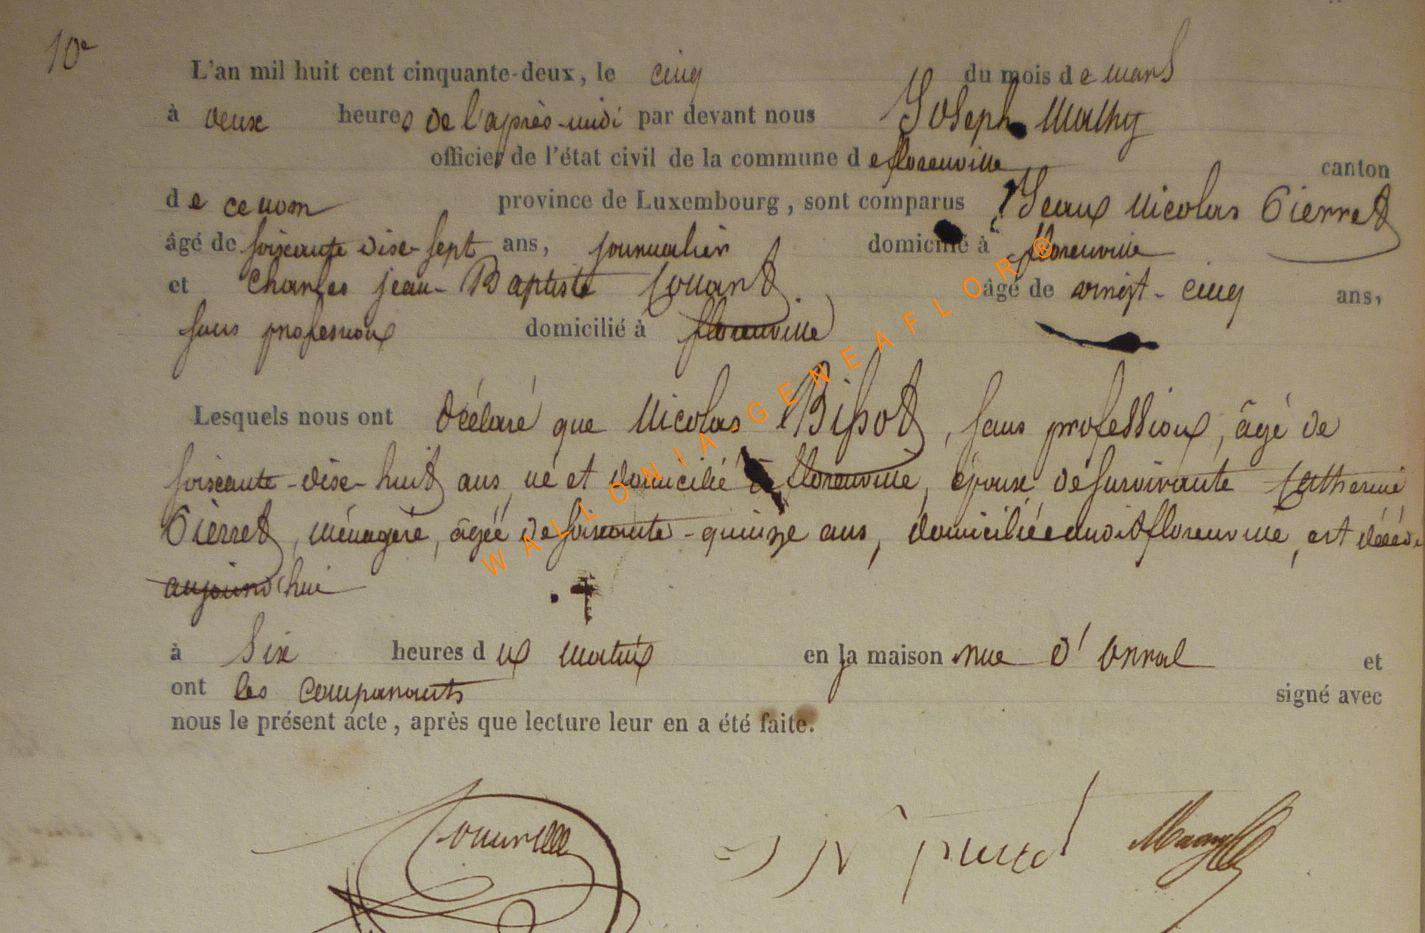 10e
L'an mil huit cent cinquante-deux, le cinq du mois de mars
à deux heures de l'après-midi par devant nous Joseph Mathy
officier de l'état civil de la commune de florenville canton
de ce nom province de Luxembourg, sont comparus Jean Nicolas Pierret
âgé de soixante dix-sept ans, journalier domicilié à florenville
et Charles jean-Baptiste âgé de vingt-cinq ans,
sans profession domicilié à florenville
Lesquels nous ont déclaré que Nicolas, sans profession, âgé de
soixante-dix-huit ans, né et domicilié à florenville, époux de survivante Catherine
Pierret, ménagère, âgée de soixante-quinze ans, domiciliée audit florenville, est décédé
aujourd'hui
à Six heures du matin en sa maison rue d'orval et
ont les comparants signé avec
nous le présent acte, après que lecture leur en a été faite.
WALLONIA GENEAFLOR ®